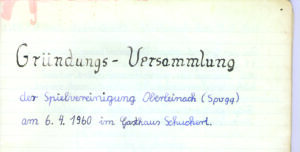 Gründungs - Versammlung
der Spielvereinigung Oberleinach (Spvgg)
am 6. 9. 1960 im Gasthaus Schuchert.